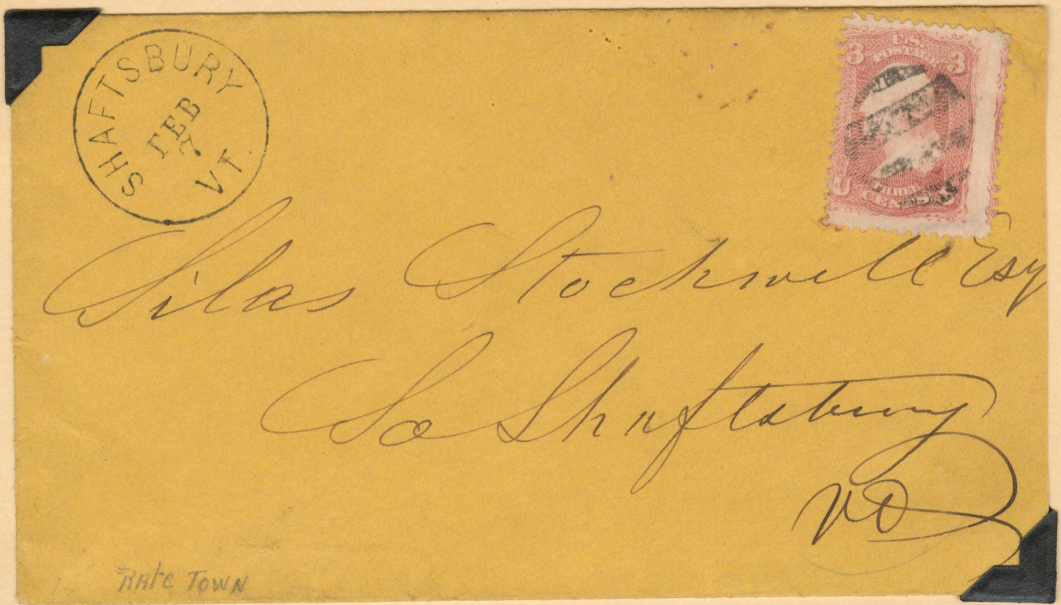 SHAFTSBURY
FEB
7
VT.
U.S.
POSTAGE
3 3
U
THREE
CENTS
Silas Stockwell Esq
So Shaftsbury
Vt
RAte TOWN